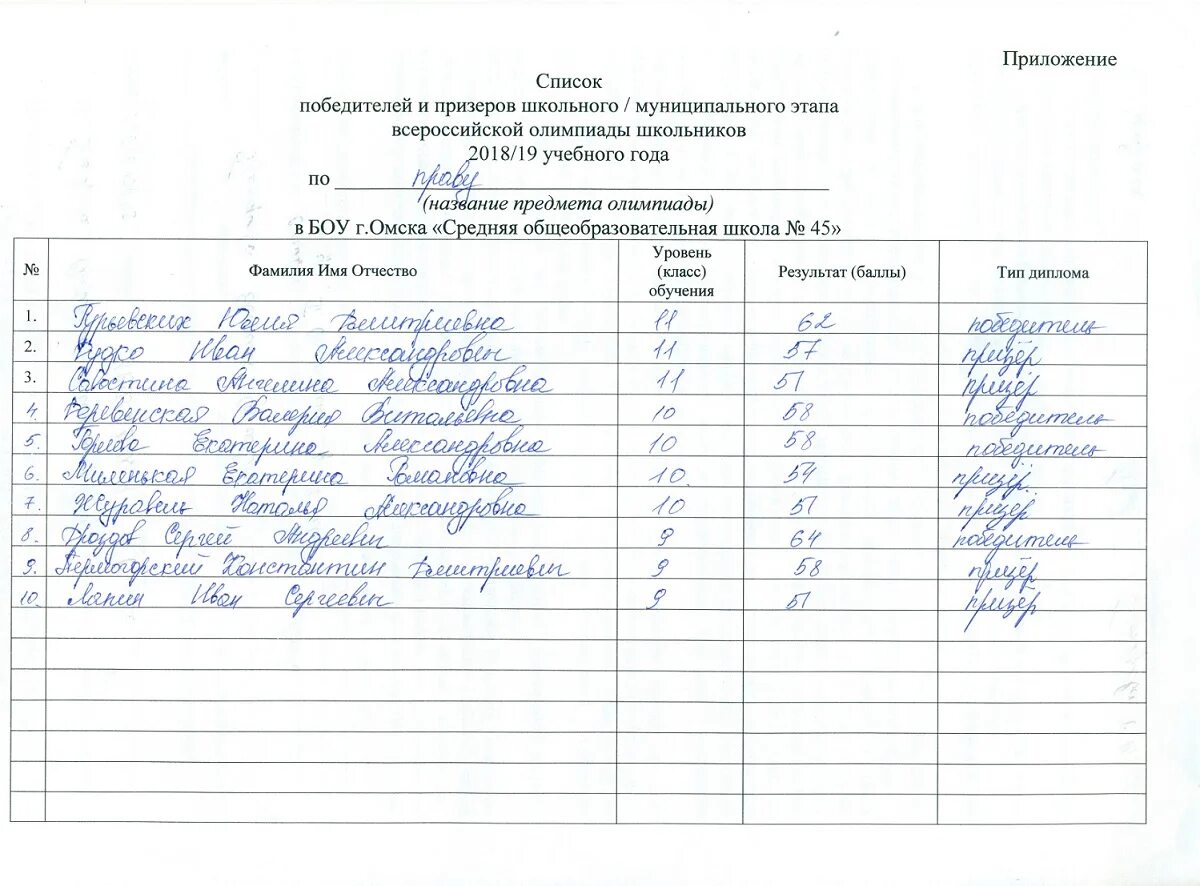 Приложение
Список
победителей и призеров школьного / муниципального этапа
всероссийской олимпиады школьников
2018/19 учебного года
по праву
(название предмета олимпиады)
в БОУ г.Омска «Средняя общеобразовательная школа № 45»
№ Фамилия Имя Отчество Уровень (класс) обучения Результат (баллы) Тип диплома
1. Гурьевских Юлия Дмитриевна 11 62 победитель
2. Дудко Иван Александрович 11 57 призёр
3. Савостина Ангелина Александровна 11 51 призёр
4. Деревенская Валерия Витальевна 10 58 победитель
5. Горева Екатерина Александровна 10 58 победитель
6. Миленькая Екатерина Романовна 10. 54 призёр.
7. Журавель Наталья Александровна 10 51 призёр
8. Дроздов Сергей Андреевич 9 64 победитель
9. Пермогорский Константин Дмитриевич 9 58 призёр
10. Лапин Иван Сергеевич 9 51 призёр